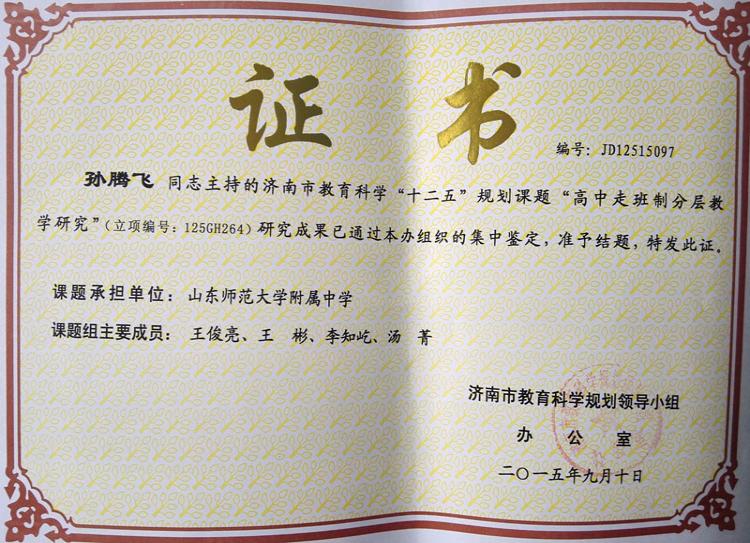 证 书
编号：JD12515097
孙腾飞 同志主持的济南市教育科学“十二五”规划课题“高中走班制分层教
学研究”（立项编号：125GH264）研究成果已通过本办组织的集中鉴定，准予结题，特发此证。
课题承担单位：山东师范大学附属中学
课题组主要成员： 王俊亮、王 彬、李知屹、汤 菁
济南市教育科学规划领导小组
办 公 室
二〇一五年九月十日